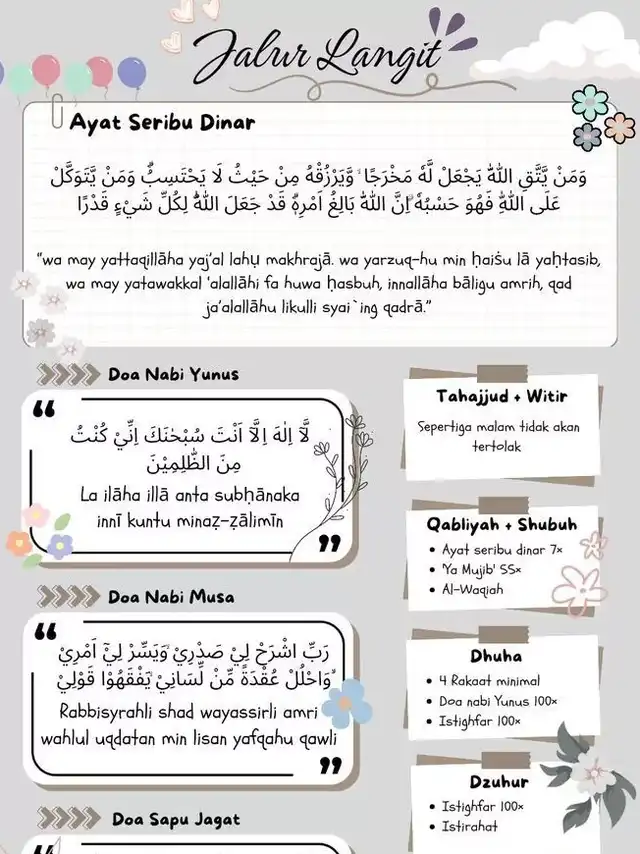 Jalur Langit
Ayat Seribu Dinar
وَمَنْ يَّتَّقِ اللّٰهَ يَجْعَلْ لَّهٗ مَخْرَجًا ۙ وَّيَرْزُقْهُ مِنْ حَيْثُ لَا يَحْتَسِبُۗ وَمَنْ يَّتَوَكَّلْ
عَلَى اللّٰهِ فَهُوَ حَسْبُهٗ ۗاِنَّ اللّٰهَ بَالِغُ اَمْرِهٖۗ قَدْ جَعَلَ اللّٰهُ لِكُلِّ شَيْءٍ قَدْرًا
"wa may yattaqillāha yaj'al lahụ makhrajā. wa yarzuq-hu min ḥaiṡu lā yaḥtasib,
wa may yatawakkal 'alallāhi fa huwa ḥasbuh, innallāha bāligu amrih, qad
ja'alallāhu likulli syai`ing qadrā."
Doa Nabi Yunus
لَّآ اِلٰهَ اِلَّآ اَنْتَ سُبْحٰنَكَ اِنِّيْ كُنْتُ
مِنَ الظّٰلِمِيْنَ
La ilāha illā anta subḥānaka
innī kuntu minaẓ-ẓālimīn
Doa Nabi Musa
رَبِّ اشْرَحْ لِيْ صَدْرِيْ ۙوَيَسِّرْ لِيْٓ اَمْرِيْ
ۙوَاحْلُلْ عُقْدَةً مِّنْ لِّسَانِيْ ۙيَفْقَهُوْا قَوْلِيْ
Rabbisyrahli shad wayassirli amri
wahlul uqdatan min lisan yafqahu qawli
Doa Sapu Jagat
Tahajjud + Witir
Sepertiga malam tidak akan
tertolak
Qabliyah + Shubuh
• Ayat seribu dinar 7×
• 'Ya Mujib' 55×
• Al-Waqiah
Dhuha
• 4 Rakaat minimal
• Doa nabi Yunus 100×
• Istighfar 100×
Dzuhur
• Istighfar 100×
• Istirahat